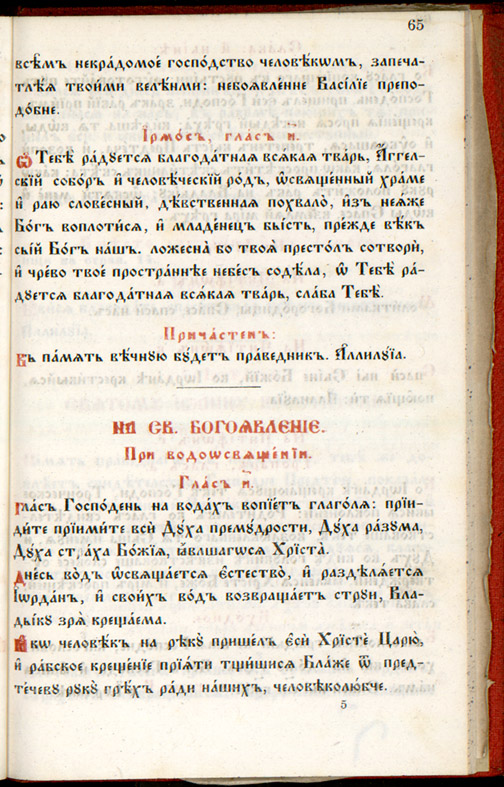 65
всѣ́мъ некра́домое госпо́дство человѣ́кωмъ, запеча-
тлѣ́я твои́ми велѣ́нми: небоявле́нне Васі́лїе препо-
до́бне.
І҆рмо́съ, гла́съ и҃.
Ѡ Тебѣ̀ ра́дꙋется благода́тная всѧ́кая тва́рь, А҆́ггел-
скїй собо́ръ и҆ человѣ́ческїй ро́дъ, ѡ҆свѧще́нный хра́ме
и҆ раю̀ слове́сный, дѣ́вственная похвало̀, и҆зъ нея́же
Бо́гъ воплоти́ся, и҆ младе́нецъ бы́сть, пре́жде вѣ́къ
сы́й Бо́гъ на́шъ. ложесна̀ бо твоя̑ престо́лъ сотворѝ,
и҆ чре́во твоѐ простра́ннѣе небе́съ содѣ́ла, ѡ Тебѣ̀ ра́-
дꙋется благода́тная всѧ́кая тва́рь, сла́ва Тебѣ̀.
Прича́стен:
Въ па́мѧть вѣ́чнꙋю бꙋ́детъ пра́ведник. А҆ллилꙋ́їа.
НА СВ. БОГОЯВЛЕНІЕ.
При водоѡсвѧще́нїи.
Гла́съ и҃.
Гла́съ Госпо́день на вода́хъ вопїе́тъ глаго́лѧ: прїи-
ди́те прїими́те всѝ Дꙋ́ха премꙋ́дрости, Дꙋ́ха ра́зꙋма,
Дꙋ́ха стра́ха Бо́жїѧ, ꙗ҆́вльшагося Хрїста̀.
Дне́сь во́дъ ѡ҆свѧща́ется є҆стество̀, и҆ раздѣлѧ́ется
І҆ѡрда́нъ, и҆ свои́хъ во́дъ возвраща́етъ стрꙋи̑, Вла-
ды́кꙋ зрѧ̀ креща́ема.
Ꙗ҆́кѡ человѣ́къ на рѣ́кꙋ прише́лъ є҆сѝ Хрїстѐ Царю̀,
и҆ ра́бское креще́нїе прїѧ́ти тщи́шисѧ Бла́же ѿ пред-
те́чевꙋ рꙋкꙋ̀ грѣ́хъ ра́ди на́шихъ, человѣколю́бче.
5